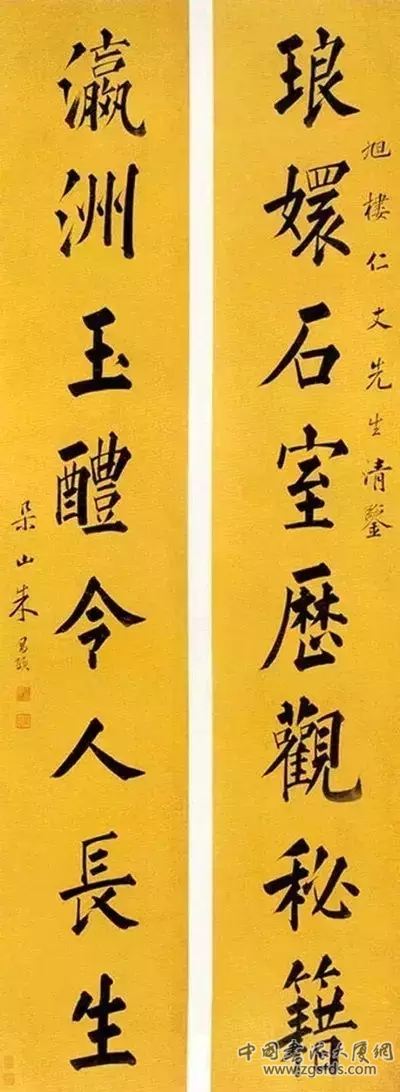 琅嬛石室歷觀秘籍
旭樓仁丈先生清鑒
瀛洲玉醴令人長生
朵山朱昌頤
中國書法大廈網
www.zgsfds.com